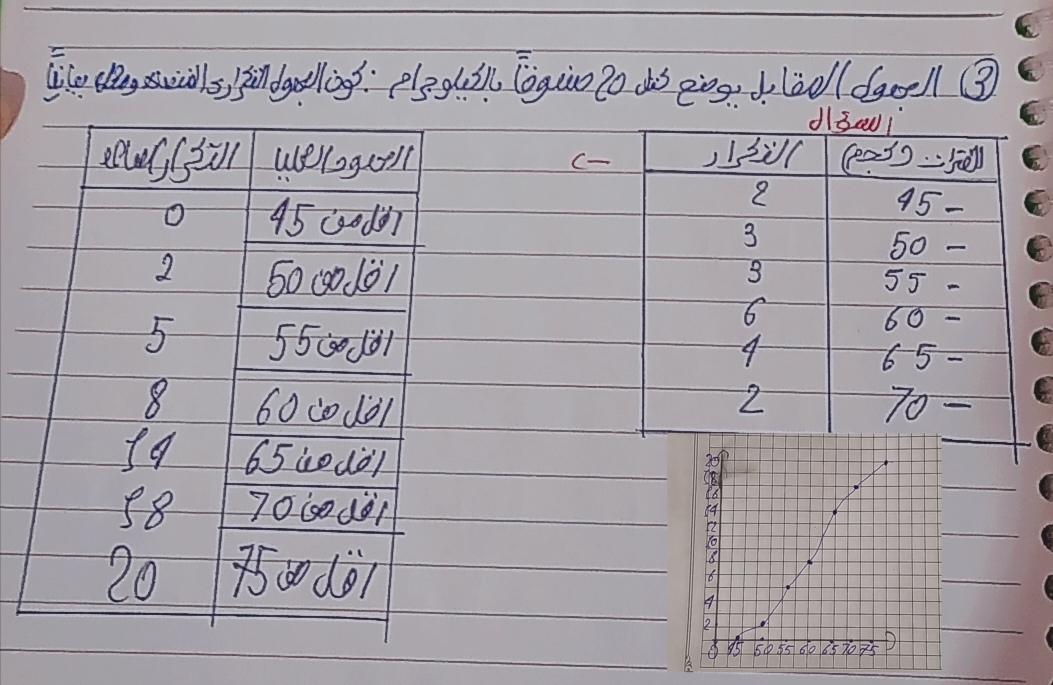 ③ الجدول المقابل يوضح كتل 20 صندوقاً بالكيلوجرام : كون الجدول التكرارى بيانياً
السؤال
الفترات التكرار
45 - 2
50 - 3
55 - 3
60 - 6
65 - 4
70 - 2
الحدود العليا التكرار
اقل من 45 0
اقل من 50 2
اقل من 55 5
اقل من 60 8
اقل من 65 14
اقل من 70 18
اقل من 75 20
20
18
16
14
12
10
8
6
4
2
0 45 50 55 60 65 70 75